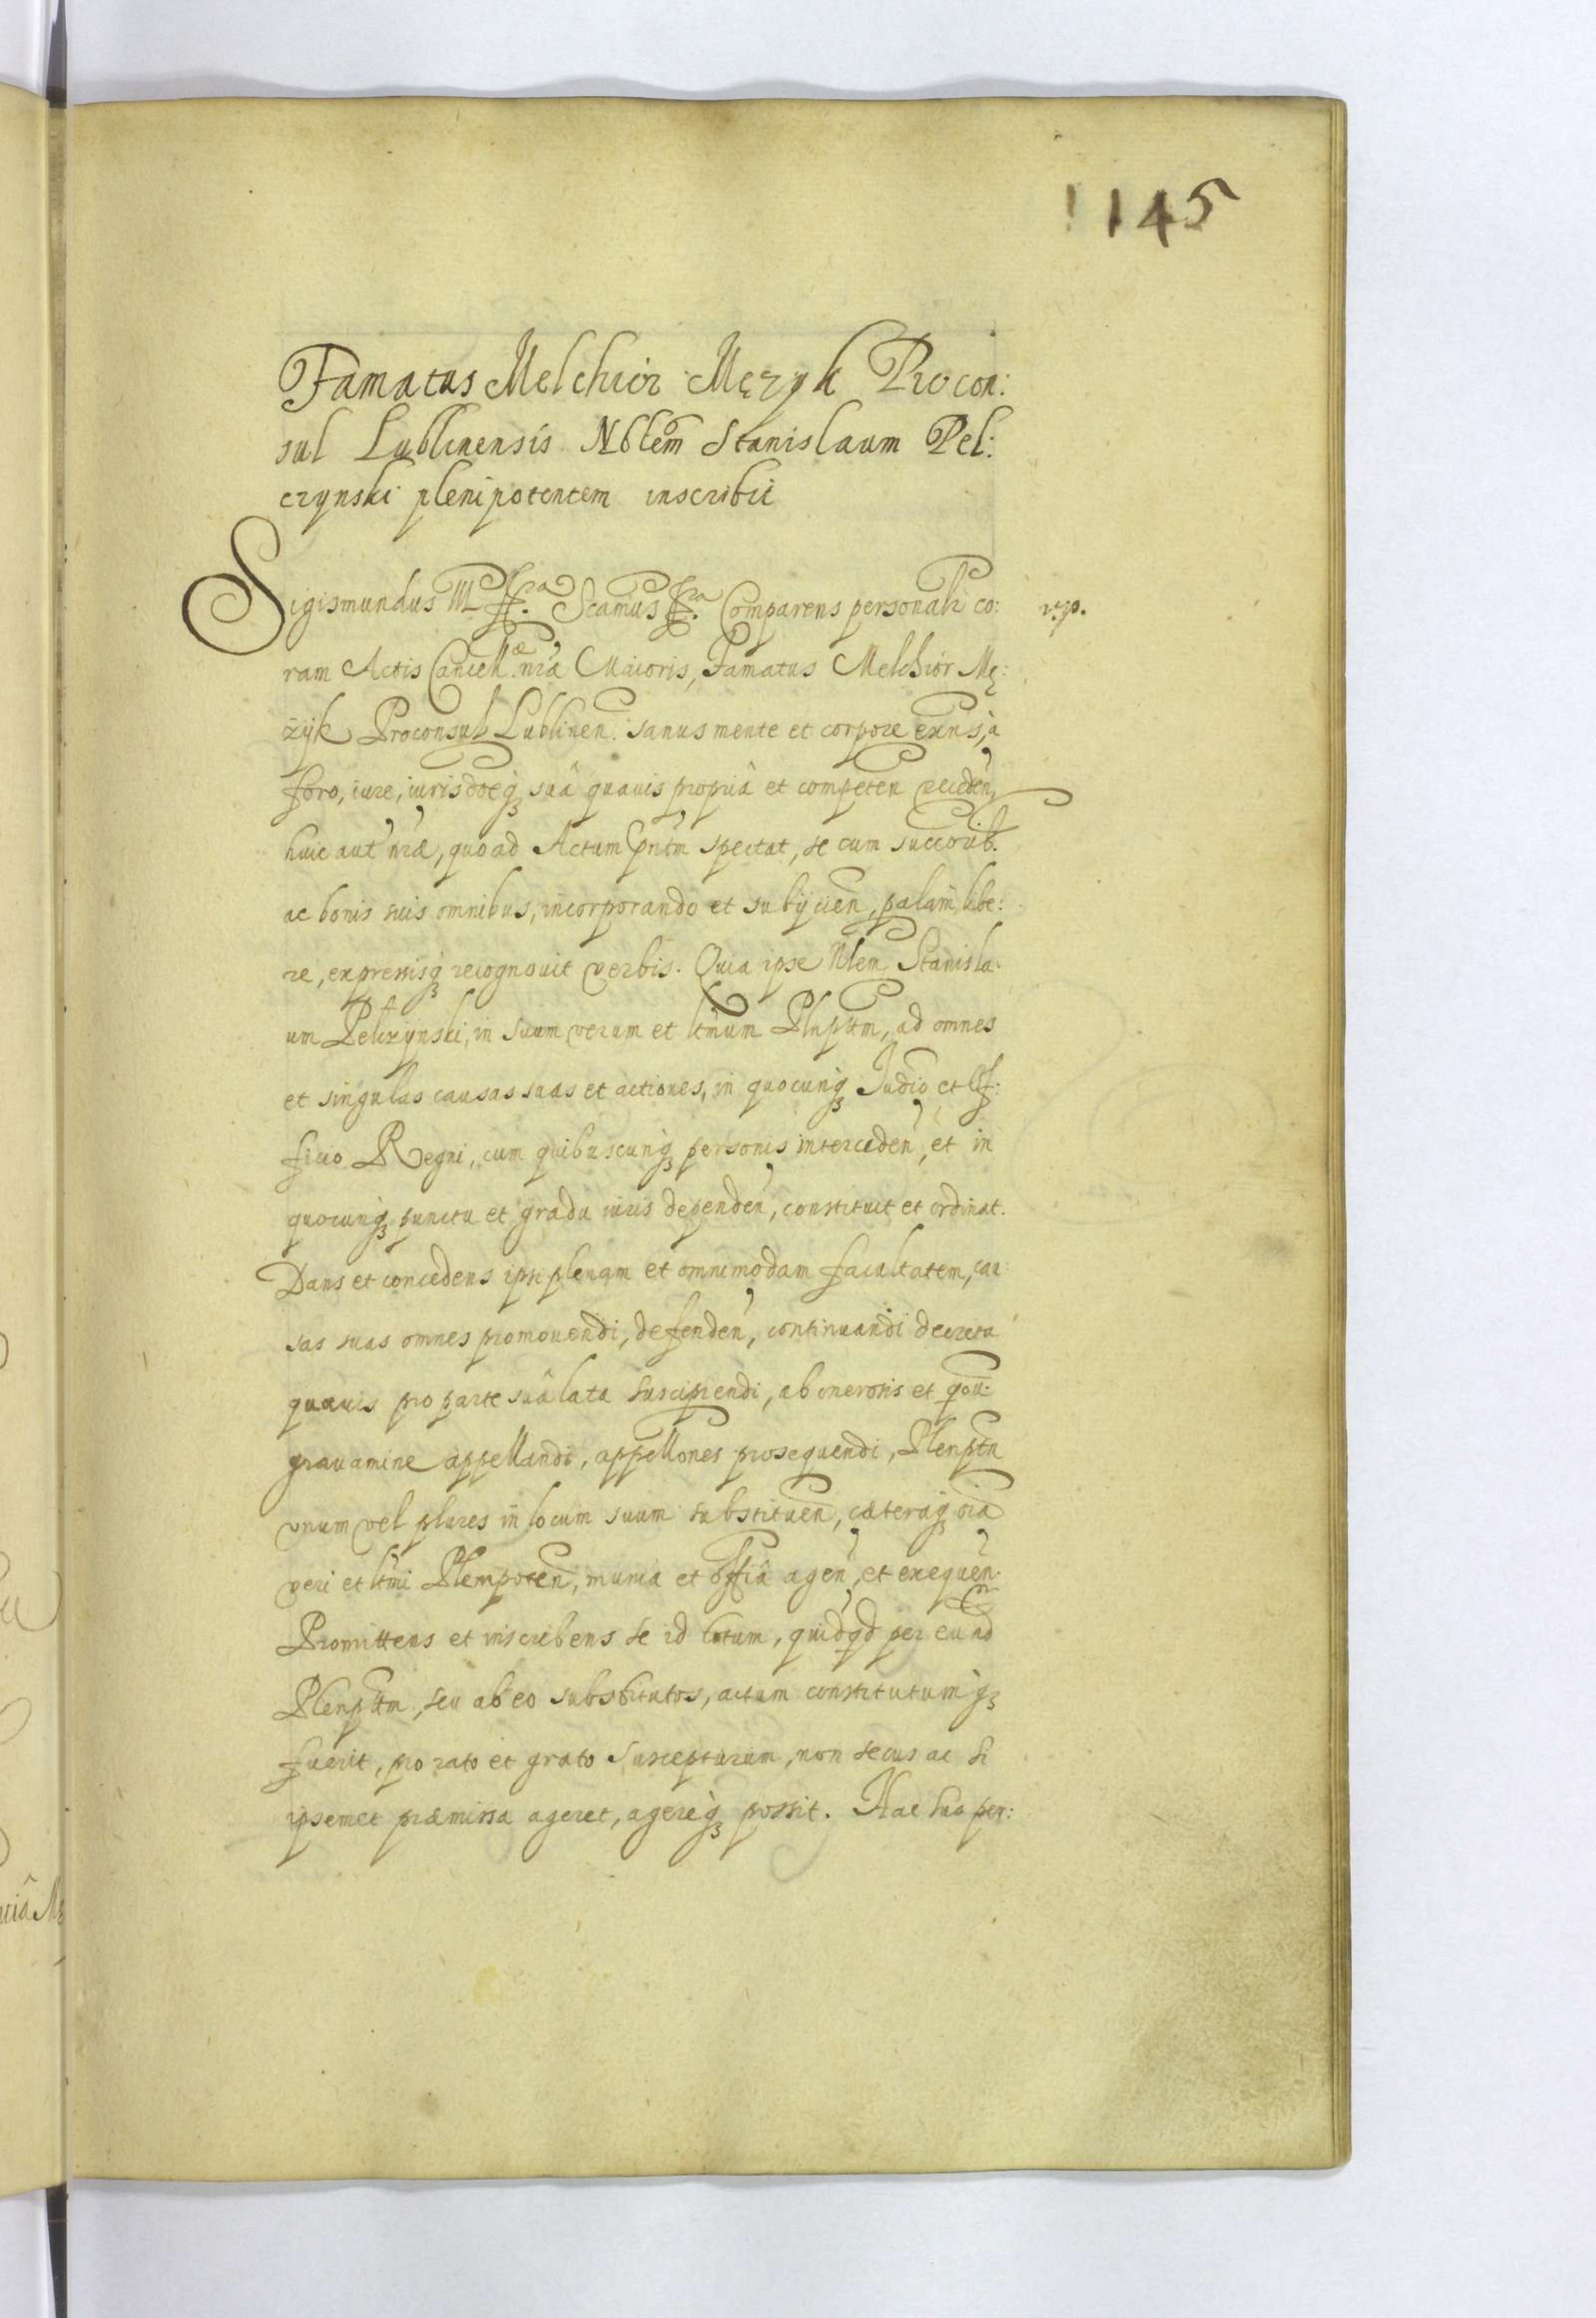 145
Famatus Melchior Męzyk Procon:
sul Lublinensis Nblem Stanislaum Pel:
czynski plenipotentem inscribit
Sigismundus III ff.ra Scamus ff.ra Comparens personalr co:
ram Actis Cancell.æ nræ Maioris, Famatus Melchior Mę:
zyk Proconsul Lublinen. sanus mente et corpore exns, à
foro, iure, iurisdoeq3 suâ quavis propriâ et competen receden,
huic aut nræ, quoad Actum pntm spectat, se cum succorib.
ac bonis suis omnibus, incorporando et subijcien, palam libe:
re, expressisq3 recognouit verbis. Quia ipse Nlem Stanisla:
um Pelczynski, in suum verum et ltmum Plnptm, ad omnes
et singulas causas suas et actiones, in quocunq3 Judio et Of:
ficio Regni, cum quibuscunq3 personis interceden, et in
quocunq3 punctu et gradu iuris dependen, constituit et ordinat.
Dans et concedens ipsi plenam et omnimodam facultatem, cau:
sas suas omnes promouendi, defenden, continuandi decreta
quævis pro parte suâ lata suscipiendi, ab onerosis et qou:
gravamine appellandi, appellones prosequendi, Plenptn
vnum vel plures in locum suum substituen, cæteraq3 oia
veri et ltmi Plenipoten, munia et offia agen, et exequen.
Promittens et inscribens se id totum, quidqd per eund
Plenptm, seu ab eo substitutos, actum constitutumq3
fuerit, pro rato et grato suscepturum, non secus ac si
ipsemet præmissa ageret, agereq3 possit. Hac sua per: